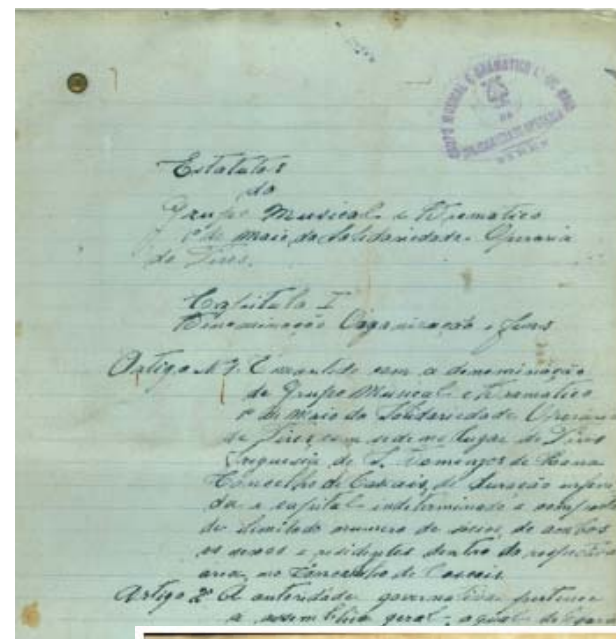 GRUPO MUSICAL E DRAMATICO 1º DE MAIO
DA
SOLIDARIEDADE OPERARIA
Estatutos
do
Grupo Musical e Dramatico
1º de Maio da Solidariedade Operaria
de Tires.
Capitulo I
Denominação Organização e fins
Artigo Nº 1. É com a denominação
de Grupo Musical e Dramatico
1º de Maio da Solidariedade Operaria
de Tires, com sede no lugar de Tires
freguesia de S. Domingos de Rana
Concelho de Cascais, de duração
e capital indeterminado e
de limitado numero de socios, de ambos
os sexos e residentes dentro da respectiva
area, no Concelho de Cascais.
Artigo 2º A autoridade governativa pertence
a assemblêa geral, a qual